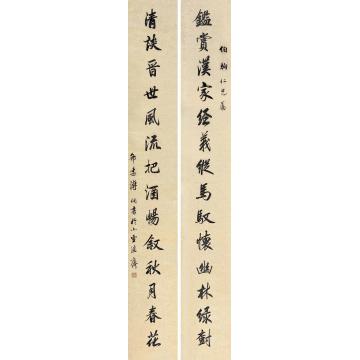 伯翰仁兄屬
鑑賞漢家經義縱馬馭懷幽林綠樹
清談晉世風流把酒暢敘秋月春花
書於小